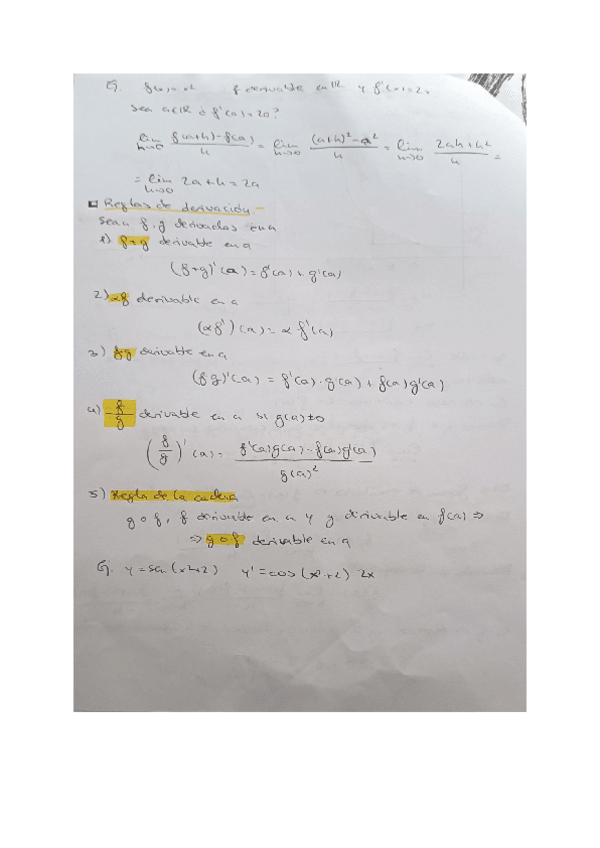 Ej. f(x) = x² f derivable en ℝ y f'(x) = 2x
Sea a∈ℝ ¿ f'(a) = 2a?
lim h→0 (f(a+h) - f(a))/h = lim h→0 ((a+h)² - a²)/h = lim h→0 (2ah + h²)/h =
= lim h→0 2a + h = 2a
Reglas de derivación
Sean f, g derivadas en a
1) f+g derivable en a
(f+g)'(a) = f'(a) + g'(a)
2) αf derivable en a
(αf')(a) = α f'(a)
3) f·g derivable en a
(fg)'(a) = f'(a) · g(a) + f(a) g'(a)
4) f/g derivable en a si g(a) ≠ 0
(f/g)'(a) = (f'(a)g(a) - f(a)g'(a))/g(a)²
5) Regla de la cadena
g∘f, f derivable en a y g derivable en f(a) ⇒
⇒ g∘f derivable en a
Ej. y = sen(x²+2) y' = cos(x²+2) 2x